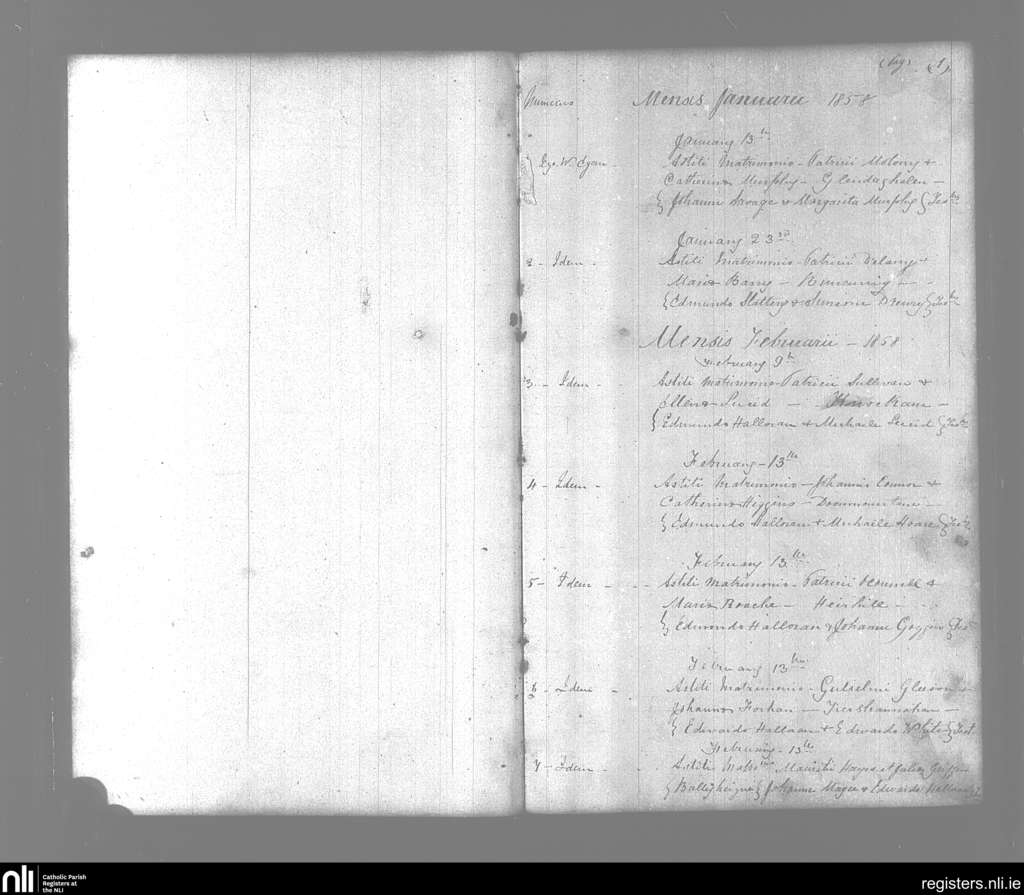 (1)
Numerus Mensis Januarii 1858
January 13th
Ego W. Egan - Astiti Matrimonio - Patricii Molony &
Catherina Murphy -
} Johanne Savage & Margarita Murphy { Testibus
January 23rd
2 - Idem - Astiti Matrimonio - Patricii Delany &
Maria Barry -
{ Edmundo Slattery & { Testibus
Mensis Februarii - 1858
February 9th
3 - Idem - Astiti Matrimonio - Patricii Sullivan &
Ellena Lucid -
{ Edmundo Halloran & Michaele Lucid { Testibus
February - 13th
4 - Idem - Astiti Matrimonio - Johannis Connor &
Catherina Higgins -
} Edmundo Halloran & Michaele Hoare { Test
February 13th
5 - Idem - Astiti Matrimonio - Patricii &
Maria Roache -
} Edmundo Halloran & Johanne Goggin { Test
February 13th
6 - Idem - Astiti Matrimonio - Gulielmi Gleeson &
Johanna -
{ Edwardo Halloran & Edwardo White { Test
February - 13th
7 - Idem - Astiti Matrim Mauritii Hayes et Julia Griffin
{ Johanne Magee & Edwardo Halloran
nli
Catholic Parish
Registers at
the NLI
registers.nli.ie